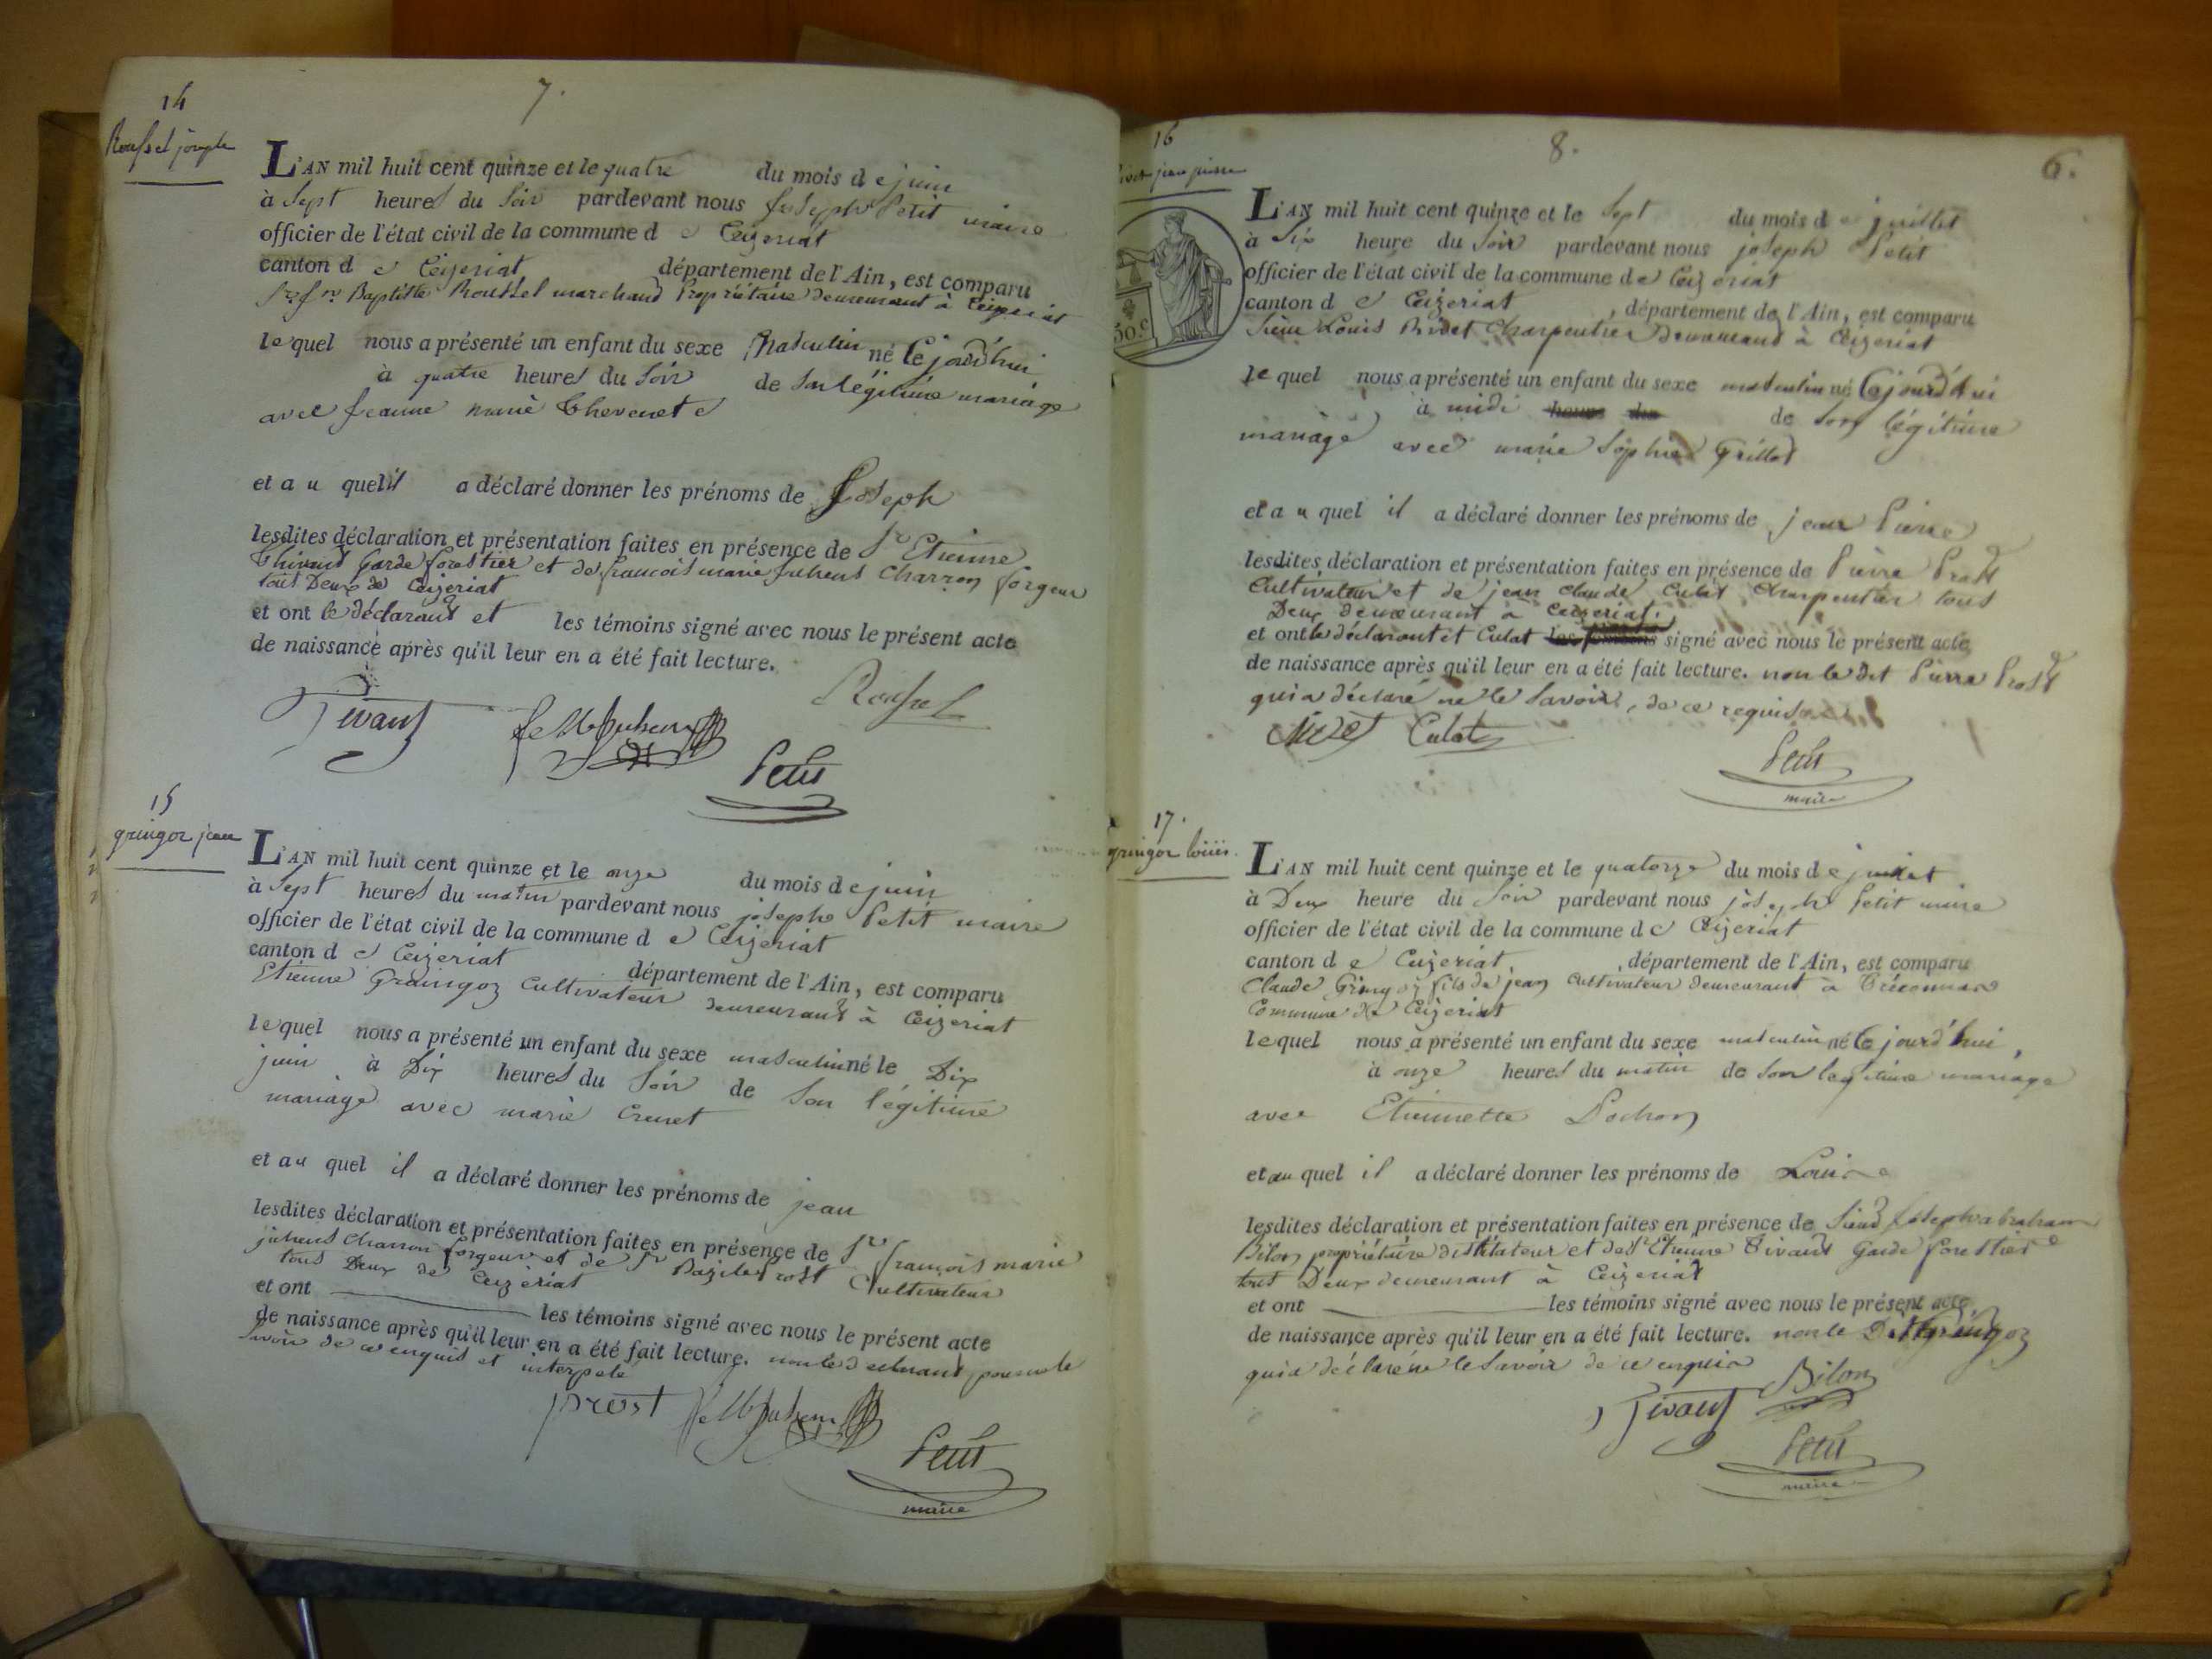 7.
14
Roussel joseph
L'AN mil huit cent quinze et le quatre du mois de juin
à Sept heures du Soir pardevant nous Joseph Petit maire
officier de l'état civil de la commune d e Ceizeriat
canton d e Ceizeriat département de l'Ain, est comparu
Baptiste Roussel marchand Propriétaire demeurant à Ceizeriat
lequel nous a présenté un enfant du sexe Masculin né Cejourd'hui
à quatre heures du Soir de Son légitime mariage
avec Jeanne marie Thevenet
et a u quel il a déclaré donner les prénoms de Joseph
lesdites déclaration et présentation faites en présence de Sr Etienne
Thivant Garde forestier et de francois marie Juhens Charron forgeur
tous Deux de Ceizeriat
et ont le déclarant et les témoins signé avec nous le présent acte
de naissance après qu'il leur en a été fait lecture.
Roussel
Tivant
Petit
15
gringoz jean
L'AN mil huit cent quinze et le onze du mois de juin
à Sept heures du matin pardevant nous joseph Petit maire
officier de l'état civil de la commune d e Ceizeriat
canton d e Ceizeriat département de l'Ain, est comparu
Etienne Graingoz Cultivateur demeurant à Ceizeriat
lequel nous a présenté un enfant du sexe masculin né le Dix
juin à Dix heures du Soir de Son légitime
mariage avec marie Crenet
et au quel il a déclaré donner les prénoms de jean
lesdites déclaration et présentation faites en présence de Sr françois marie
juhens Charron forgeur et de Sr Bazile Prost Cultivateur
tous Deux de Ceizériat
et ont les témoins signé avec nous le présent acte
de naissance après qu'il leur en a été fait lecture. non le declarant pour ne le
Savoir de ce enquis et interpelé
prost
Petit
maire
8.
6.
16
jean pierre
50.c
L'AN mil huit cent quinze et le Sept du mois d e juillet
à Six heure du Soir pardevant nous joseph Petit
officier de l'état civil de la commune de Ceizériat
canton d e Ceizeriat, département de l'Ain, est comparu
Sieur Louis Nivet Charpentier Demeurant à Ceizeriat
lequel nous a présenté un enfant du sexe masculin né Cejourd'hui
à midi heures du de Son légitime
mariage avec marie Sophie Grillet
et a u quel il a déclaré donner les prénoms de jean Pierre
lesdites déclaration et présentation faites en présence de Pierre Prost
Cultivateur et de jean Claude Culat Charpentier tous
Deux demeurant à Ceizeriat.
et ont le déclarant et Culat les témoins signé avec nous le présent acte
de naissance après qu'il leur en a été fait lecture. non le dit Pierre Prost
qui a déclaré ne le Savoir, de ce requis
Nivet Culat
Petit
maire
17.
gringoz loüis.
L'AN mil huit cent quinze et le quatorze du mois d e juillet
à Deux heure du Soir pardevant nous jòseph Petit maire
officier de l'état civil de la commune d e Ceizeriat
canton d e Ceizeriat, département de l'Ain, est comparu
Claude Gringoz fils de jean Cultivateur demeurant à Tréconnas
Commune de Ceizeriat
lequel nous a présenté un enfant du sexe masculin né Cejourd'hui,
à onze heures du matin de Son legitime mariage
avec Etiennette Pochon
et au quel il a déclaré donner les prénoms de Louis
lesdites déclaration et présentation faites en présence de Sieur Joseph abraham
Bilon propriétaire distilateur et de Sr Etienne Tivant Garde forestier
tous Deux demeurant à Ceizeriat
et ont les témoins signé avec nous le présent acte
de naissance après qu'il leur en a été fait lecture. non le Dit Gringoz
qui a déclaré ne le Savoir de ce enquis
Tivant Bilon
Petit
maire